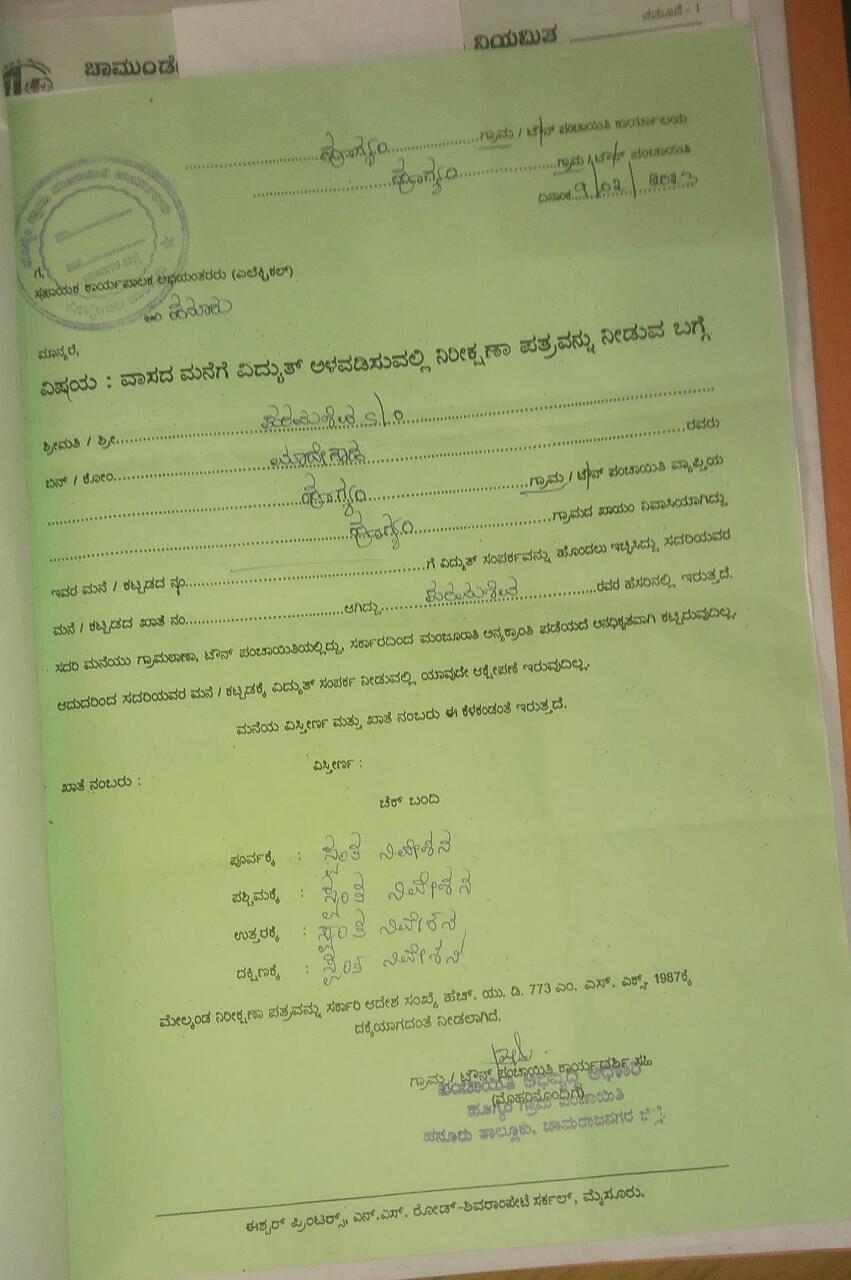 ನಮೂನೆ - 1
ನಿಯಮಿತ
ಚಾಮುಂಡೇ
ಹೂಗ್ಯಂ ಗ್ರಾಮ / ಟೌನ್ ಪಂಚಾಯಿತಿ ಕಾರ್ಯಾಲಯ
ಹೂಗ್ಯಂ ಗ್ರಾಮ / ಟೌನ್ ಪಂಚಾಯಿತಿ
ದಿನಾಂಕ
ಗೆ,
ಸಹಾಯಕ ಕಾರ್ಯಪಾಲಕ ಅಭಿಯಂತರರು (ಎಲೆಕ್ಟ್ರಿಕಲ್)
ಹನೂರು
ಮಾನ್ಯರೆ,
ವಿಷಯ : ವಾಸದ ಮನೆಗೆ ವಿದ್ಯುತ್ ಅಳವಡಿಸುವಲ್ಲಿ ನಿರೀಕ್ಷಣಾ ಪತ್ರವನ್ನು ನೀಡುವ ಬಗ್ಗೆ
ಶ್ರೀಮತಿ / ಶ್ರೀ S/o
ಬಿನ್ / ಕೋಂ ರವರು
ಹೂಗ್ಯಂ ಗ್ರಾಮ / ಟೌನ್ ಪಂಚಾಯಿತಿ ವ್ಯಾಪ್ತಿಯ
ಹೂಗ್ಯಂ ಗ್ರಾಮದ ಖಾಯಂ ನಿವಾಸಿಯಾಗಿದ್ದು
ಇವರ ಮನೆ / ಕಟ್ಟಡದ ನಂ. ಗೆ ವಿದ್ಯುತ್ ಸಂಪರ್ಕವನ್ನು ಹೊಂದಲು ಇಚ್ಛಿಸಿದ್ದು ಸದರಿಯವರ
ಮನೆ / ಕಟ್ಟಡದ ಖಾತೆ ನಂ. ಆಗಿದ್ದು ರವರ ಹೆಸರಿನಲ್ಲಿ ಇರುತ್ತದೆ.
ಸದರಿ ಮನೆಯು ಗ್ರಾಮಠಾಣಾ, ಟೌನ್ ಪಂಚಾಯಿತಿಯಲ್ಲಿದ್ದು, ಸರ್ಕಾರದಿಂದ ಮಂಜೂರಾತಿ ಅನ್ಯಕ್ರಾಂತಿ ಪಡೆಯದೆ ಅನಧಿಕೃತವಾಗಿ ಕಟ್ಟಿರುವುದಿಲ್ಲ,
ಆದುದರಿಂದ ಸದರಿಯವರ ಮನೆ / ಕಟ್ಟಡಕ್ಕೆ ವಿದ್ಯುತ್ ಸಂಪರ್ಕ ನೀಡುವಲ್ಲಿ ಯಾವುದೇ ಆಕ್ಷೇಪಣೆ ಇರುವುದಿಲ್ಲ.
ಮನೆಯ ವಿಸ್ತೀರ್ಣ ಮತ್ತು ಖಾತೆ ನಂಬರು ಈ ಕೆಳಕಂಡಂತೆ ಇರುತ್ತದೆ.
ಖಾತೆ ನಂಬರು : ವಿಸ್ತೀರ್ಣ :
ಚೆಕ್ ಬಂದಿ
ಪೂರ್ವಕ್ಕೆ : ಸ್ವಂತ ನಿವೇಶನ
ಪಶ್ಚಿಮಕ್ಕೆ : ಸ್ವಂತ ನಿವೇಶನ
ಉತ್ತರಕ್ಕೆ : ಸ್ವಂತ ನಿವೇಶನ
ದಕ್ಷಿಣಕ್ಕೆ : ಸ್ವಂತ ನಿವೇಶನ
ಮೇಲ್ಕಂಡ ನಿರೀಕ್ಷಣಾ ಪತ್ರವನ್ನು ಸರ್ಕಾರಿ ಆದೇಶ ಸಂಖ್ಯೆ ಹೆಚ್. ಯು. ಡಿ. 773 ಎಂ. ಎಸ್. ಎಕ್ಸ್. 1987ಕ್ಕೆ
ದಕ್ಕೆಯಾಗದಂತೆ ನೀಡಲಾಗಿದೆ.
ಗ್ರಾಮ / ಟೌನ್ ಪಂಚಾಯಿತಿ ಕಾರ್ಯದರ್ಶಿ ಸಹಿ
ಪಂಚಾಯಿತಿ ಅಭಿವೃದ್ಧಿ ಅಧಿಕಾರಿ
(ಮೊಹರಿನೊಂದಿಗೆ)
ಹೂಗ್ಯಂ ಗ್ರಾಮ ಪಂಚಾಯಿತಿ
ಹನೂರು ತಾಲ್ಲೂಕು, ಚಾಮರಾಜನಗರ ಜಿಲ್ಲೆ
ಈಶ್ವರ್ ಪ್ರಿಂಟರ್ಸ್, ಎನ್.ಎಸ್. ರೋಡ್-ಶಿವರಾಂಪೇಟೆ ಸರ್ಕಲ್, ಮೈಸೂರು.